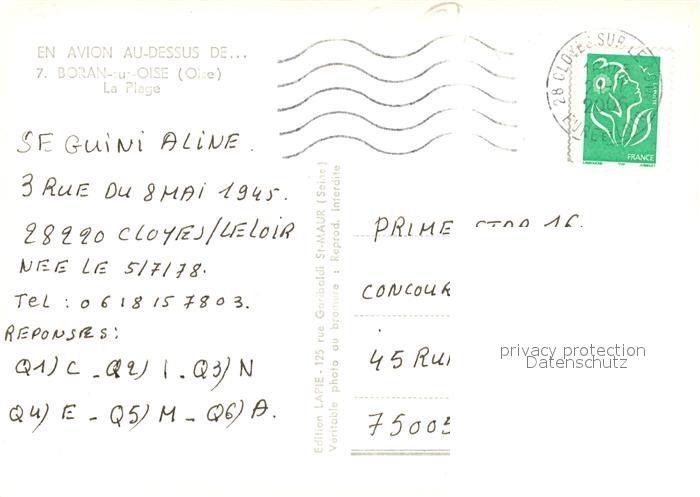 EN AVION AU-DESSUS DE...
7. BORAN-sur-OISE (Oise)
La Plage
SEGUINI ALINE.
3 RUE DU 8 MAI 1945.
28220 CLOYES/LELOIR
NEE LE 5/7/78.
Tel : 0618157803.
REPONSES:
Q1) C - Q2) I - Q3) N
Q4) E - Q5) M - Q6) A.
Edition LAPIE - 125 rue Garibaldi St-MAUR (Seine)
Véritable photo au bromure : Reprod. interdite
28 CLOYES SUR LE
FRANCE
PRIME STAR 16
CONCOUR
45 RU
75005
privacy protection
Datenschutz